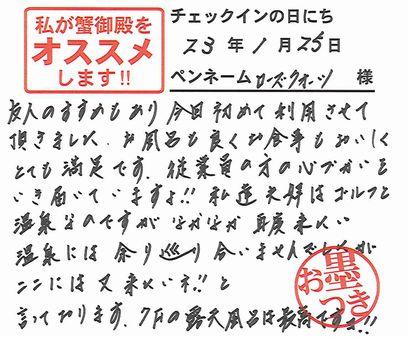 私が蟹御殿を
オススメ
します!!
チェックインの日にち
23年1月25日
ペンネーム ローズクォーツ 様
友人のすすめもあり今回初めて利用させて
頂きました、お風呂も良くお食事もおいしく
とても満足です。従業員の方の心づかいも
いき届いていますよ!! 私達夫婦はゴルフと
温泉なのですがなかなか再度来たい
温泉には余り巡り合いませんでしたが
ここには又来たいネ!!と
言っております。7Fの露天風呂は最高ですよ!!
お墨つき